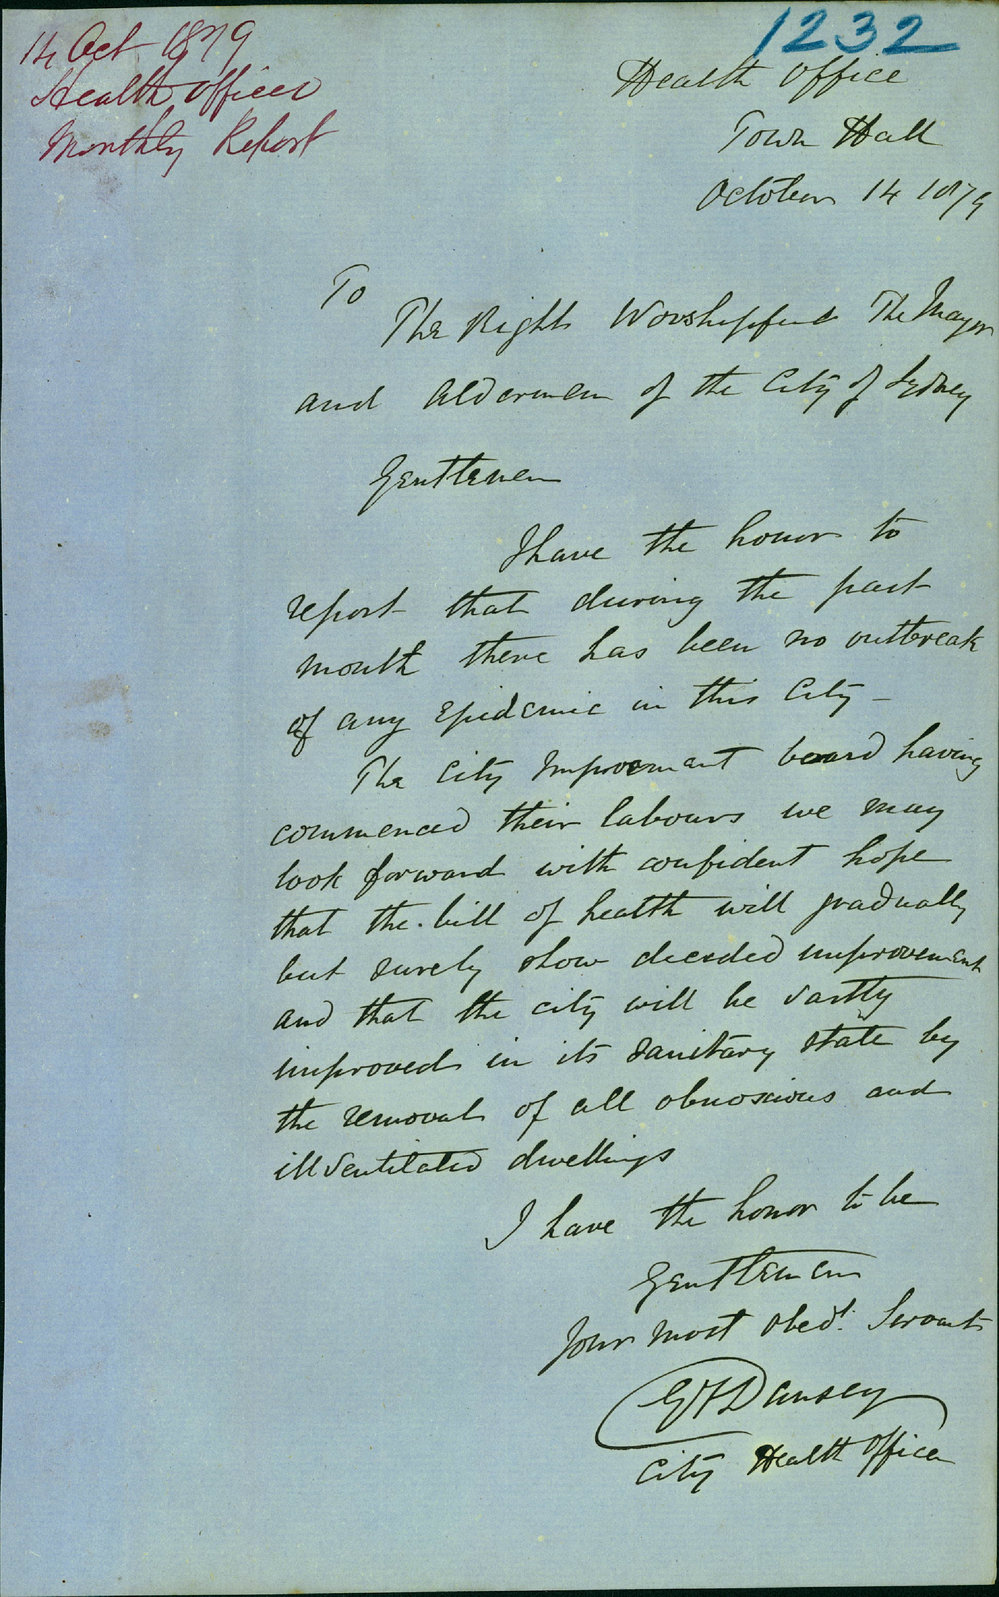 1232
14 Oct 1879
Health Officer
Monthly Report
Health Office
Town Hall
October 14 1879
To
The Right Worshipful The Mayor
and Aldermen of the City of Sydney
Gentlemen
I have the honor to
report that during the past
month there has been no outbreak
of any Epidemic in this City -
The City Improvement board having
commenced their labours we may
look forward with confident hope
that the bill of health will gradually
but surely show decided improvement
and that the city will be vastly
improved in its sanitary state by
the removal of all obnoxious and
ill ventilated dwellings
I have the honor to be
Gentlemen
Your most Obedt. Servant
G F Dansey
City Health Officer